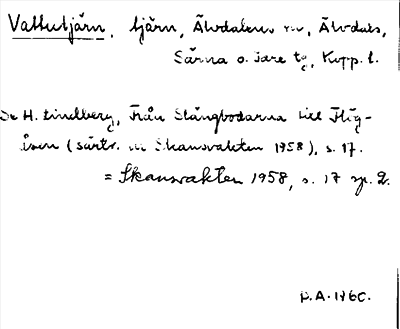 Vattutjärn, tjärn, Älvdalens sn, Älvdals,
Särna o. Idre tg, Kopp. l.
Se H. Lindberg, Från Stängbodarna till Flög-
åsen (särtr. ur Skansvakten 1958), s. 17.
= Skansvakten 1958, s. 17 sp. 2.
D.A. 1960.